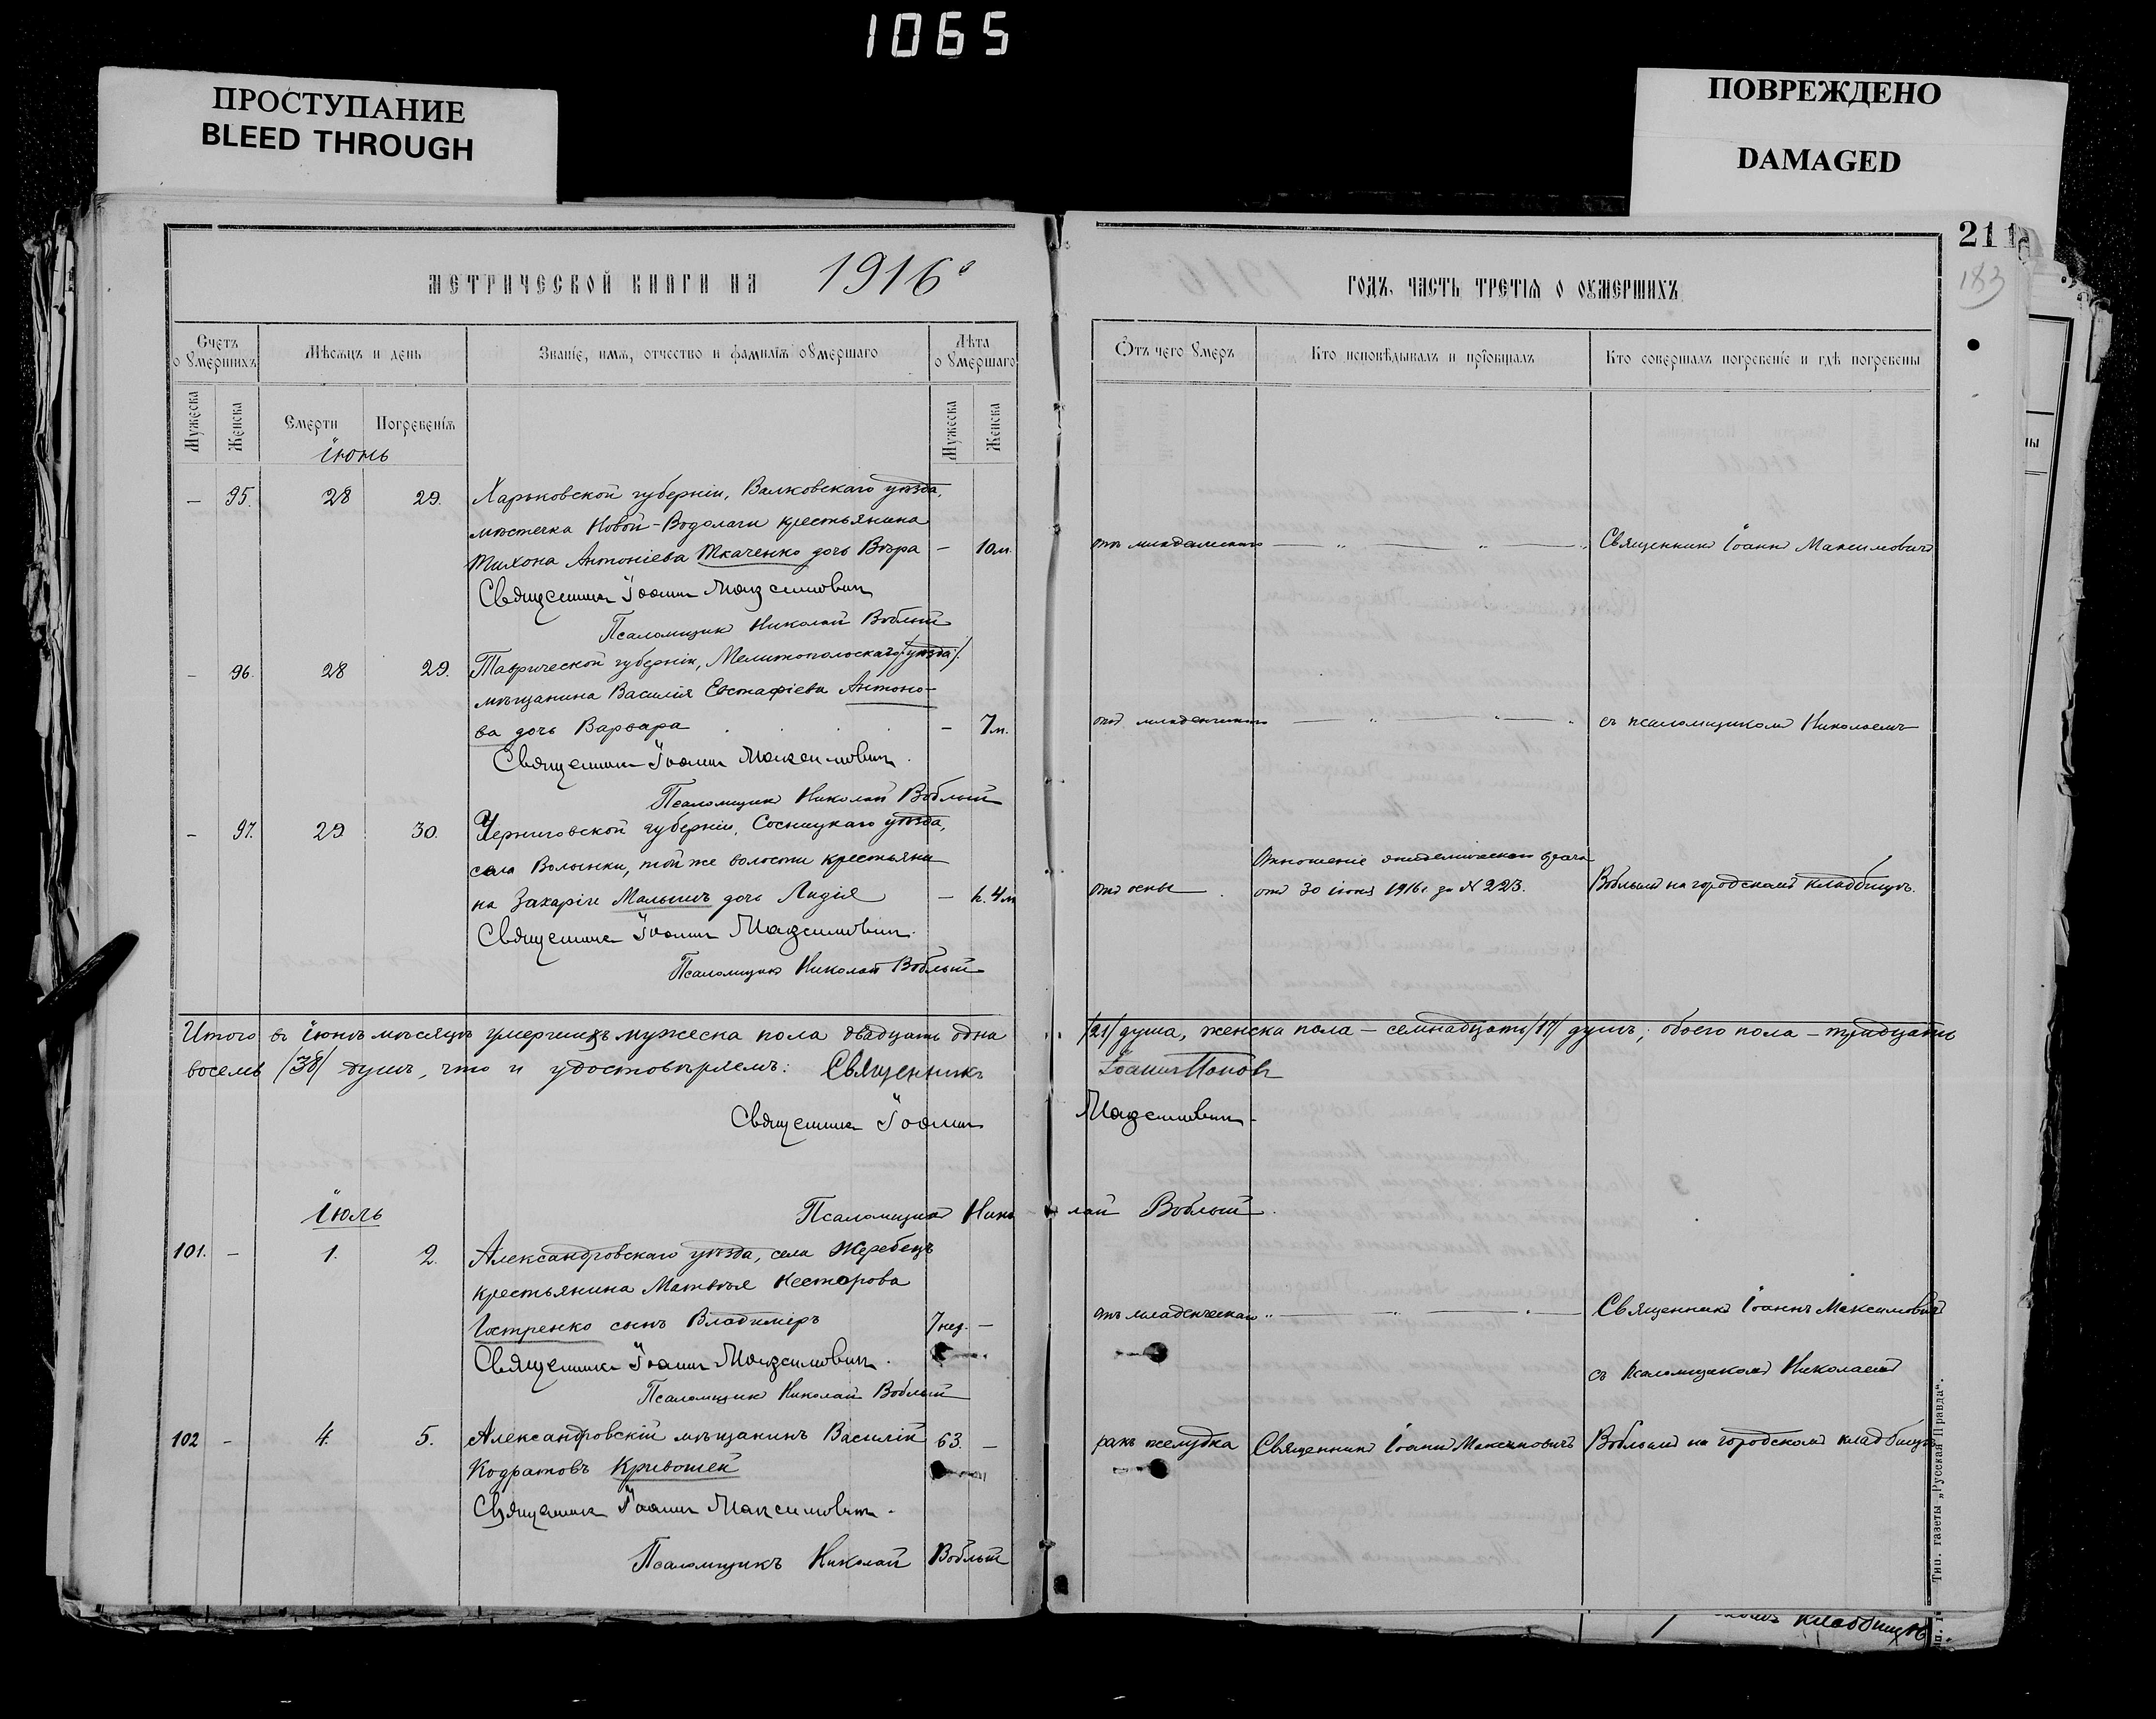 1065
ПРОСТУПАНИЕ
BLEED THROUGH
ПОВРЕЖДЕНО
DAMAGED
211
183
МЕТРИЧЕСКОЙ КНИГИ НА 1916 г
ГОДЪ, ЧАСТЬ ТРЕТІЯ О ОУМЕРШИХЪ
Счетъ о умершихъ
Мѣсяцъ и день
Званіе, имя, отчество и фамилія умершаго
Лѣта о умершаго
Отъ чего умеръ
Кто исповѣдывалъ и пріобщалъ
Кто совершалъ погребеніе и гдѣ погребены
Мужеска
Женска
Смерти
Погребенія
Мужеска
Женска
Іюнь
– 95. 28 29. Харьковской губерніи, Валковскаго уѣзда,
мѣстечка Новой-Водолаги крестьянина
Тихона Антоніева Ткаченко дочь Вѣра – 10 м. отъ младенческаго — „ — „ — „ Священникъ Іоаннъ Максимовичъ
Священникъ Іоаннъ Максимовичъ
Псаломщикъ Николай Воблый
– 96. 28 29. Таврической губерніи, Мелитопольскаго /уѣзда/.
мѣщанина Василія Евстафіева Антоно-
ва дочь Варвара – 7 м. отъ младенческаго — „ — „ — „ съ псаломщикомъ Николаемъ
Священникъ Іоаннъ Максимовичъ.
Псаломщикъ Николай Воблый
– 97. 29 30. Черниговской губерніи, Сосницкаго уѣзда,
села Волынки, той же волости крестьяни
Отношеніе эпидемическаго врача
на Захаріи Малышъ дочь Лидія – 4 м отъ оспы. отъ 30 іюня 1916 г. за № 223. Воблымъ на городскомъ кладбищѣ.
Священникъ Іоаннъ Максимовичъ.
Псаломщикъ Николай Воблый
Итого въ Іюнѣ мѣсяцѣ умершихъ мужеска пола двадцать одна /21/ душа, женска пола – семнадцать /17/ душъ; обоего пола – тридцать
восемь /38/ душъ, что и удостовѣряемъ: Священникъ Іоаннъ Поповъ
Священникъ Іоаннъ Максимовичъ.
Псаломщикъ Николай Воблый.
Іюль
101. – 1. 2. Александровскаго уѣзда, села Жеребецъ
крестьянина Матвѣя Несторова
Гостренко сынъ Владиміръ 7 нед. – отъ младенческаго „ — „ — „ — Священникъ Іоаннъ Максимовичъ
Священникъ Іоаннъ Максимовичъ.
съ псаломщикомъ Николаемъ
Псаломщикъ Николай Воблый
102 – 4. 5. Александровскій мѣщанинъ Василій 63. – ракъ желудка Священникъ Іоаннъ Максимовичъ Воблымъ на городскомъ кладбищѣ
Кодратовъ Кривошей
Священникъ Іоаннъ Максимовичъ.
Псаломщикъ Николай Воблый
Тип. газеты „Русская Правда“.
кладбищѣ